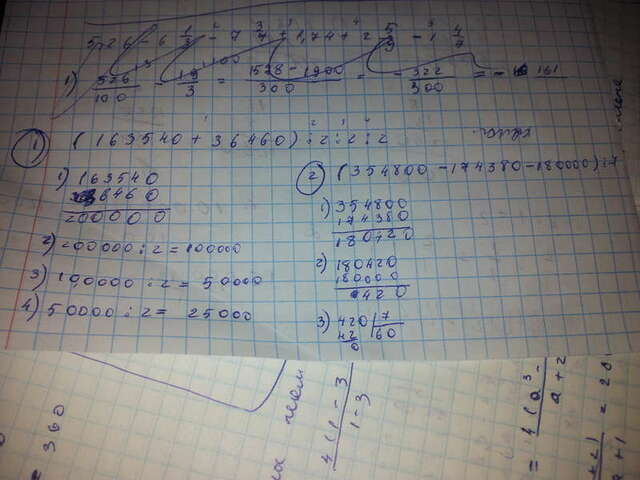 5,26 - 6 1/3 - 7 3/7 + 1,74 + 2 5/9 - 1 4/7
1) 526/100 - 19/3 = 1578 - 1900/300 = - 322/300 = - 161
① (163540 + 36460) : 2 : 2 : 2
1) 163540
36460
200000
2) 200000 : 2 = 100000
3) 100000 : 2 = 50000
4) 50000 : 2 = 25000
② (354800 - 174380 - 180000) : 7
1) 354800
174380
180420
2) 180420
180000
420
3) 420 | 7
42 60
0
360
4(1 - 3
1 - 3
= 4(a³ -
a + 2